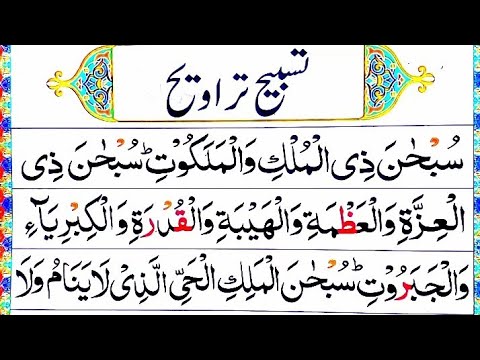 تسبیح تراویح
سُبْحٰنَ ذِی الْمُلْكِ وَالْمَلَكُوْتِ ؕ سُبْحٰنَ ذِی
الْعِزَّةِ وَالْعَظْمَةِ وَالْهَیْبَةِ وَالْقُدْرَةِ وَالْكِبْرِیَآءِ
وَالْجَبَرُوْتِ ؕ سُبْحٰنَ الْمَلِكِ الْحَیِّ الَّذِیْ لَا یَنَامُ وَلَا